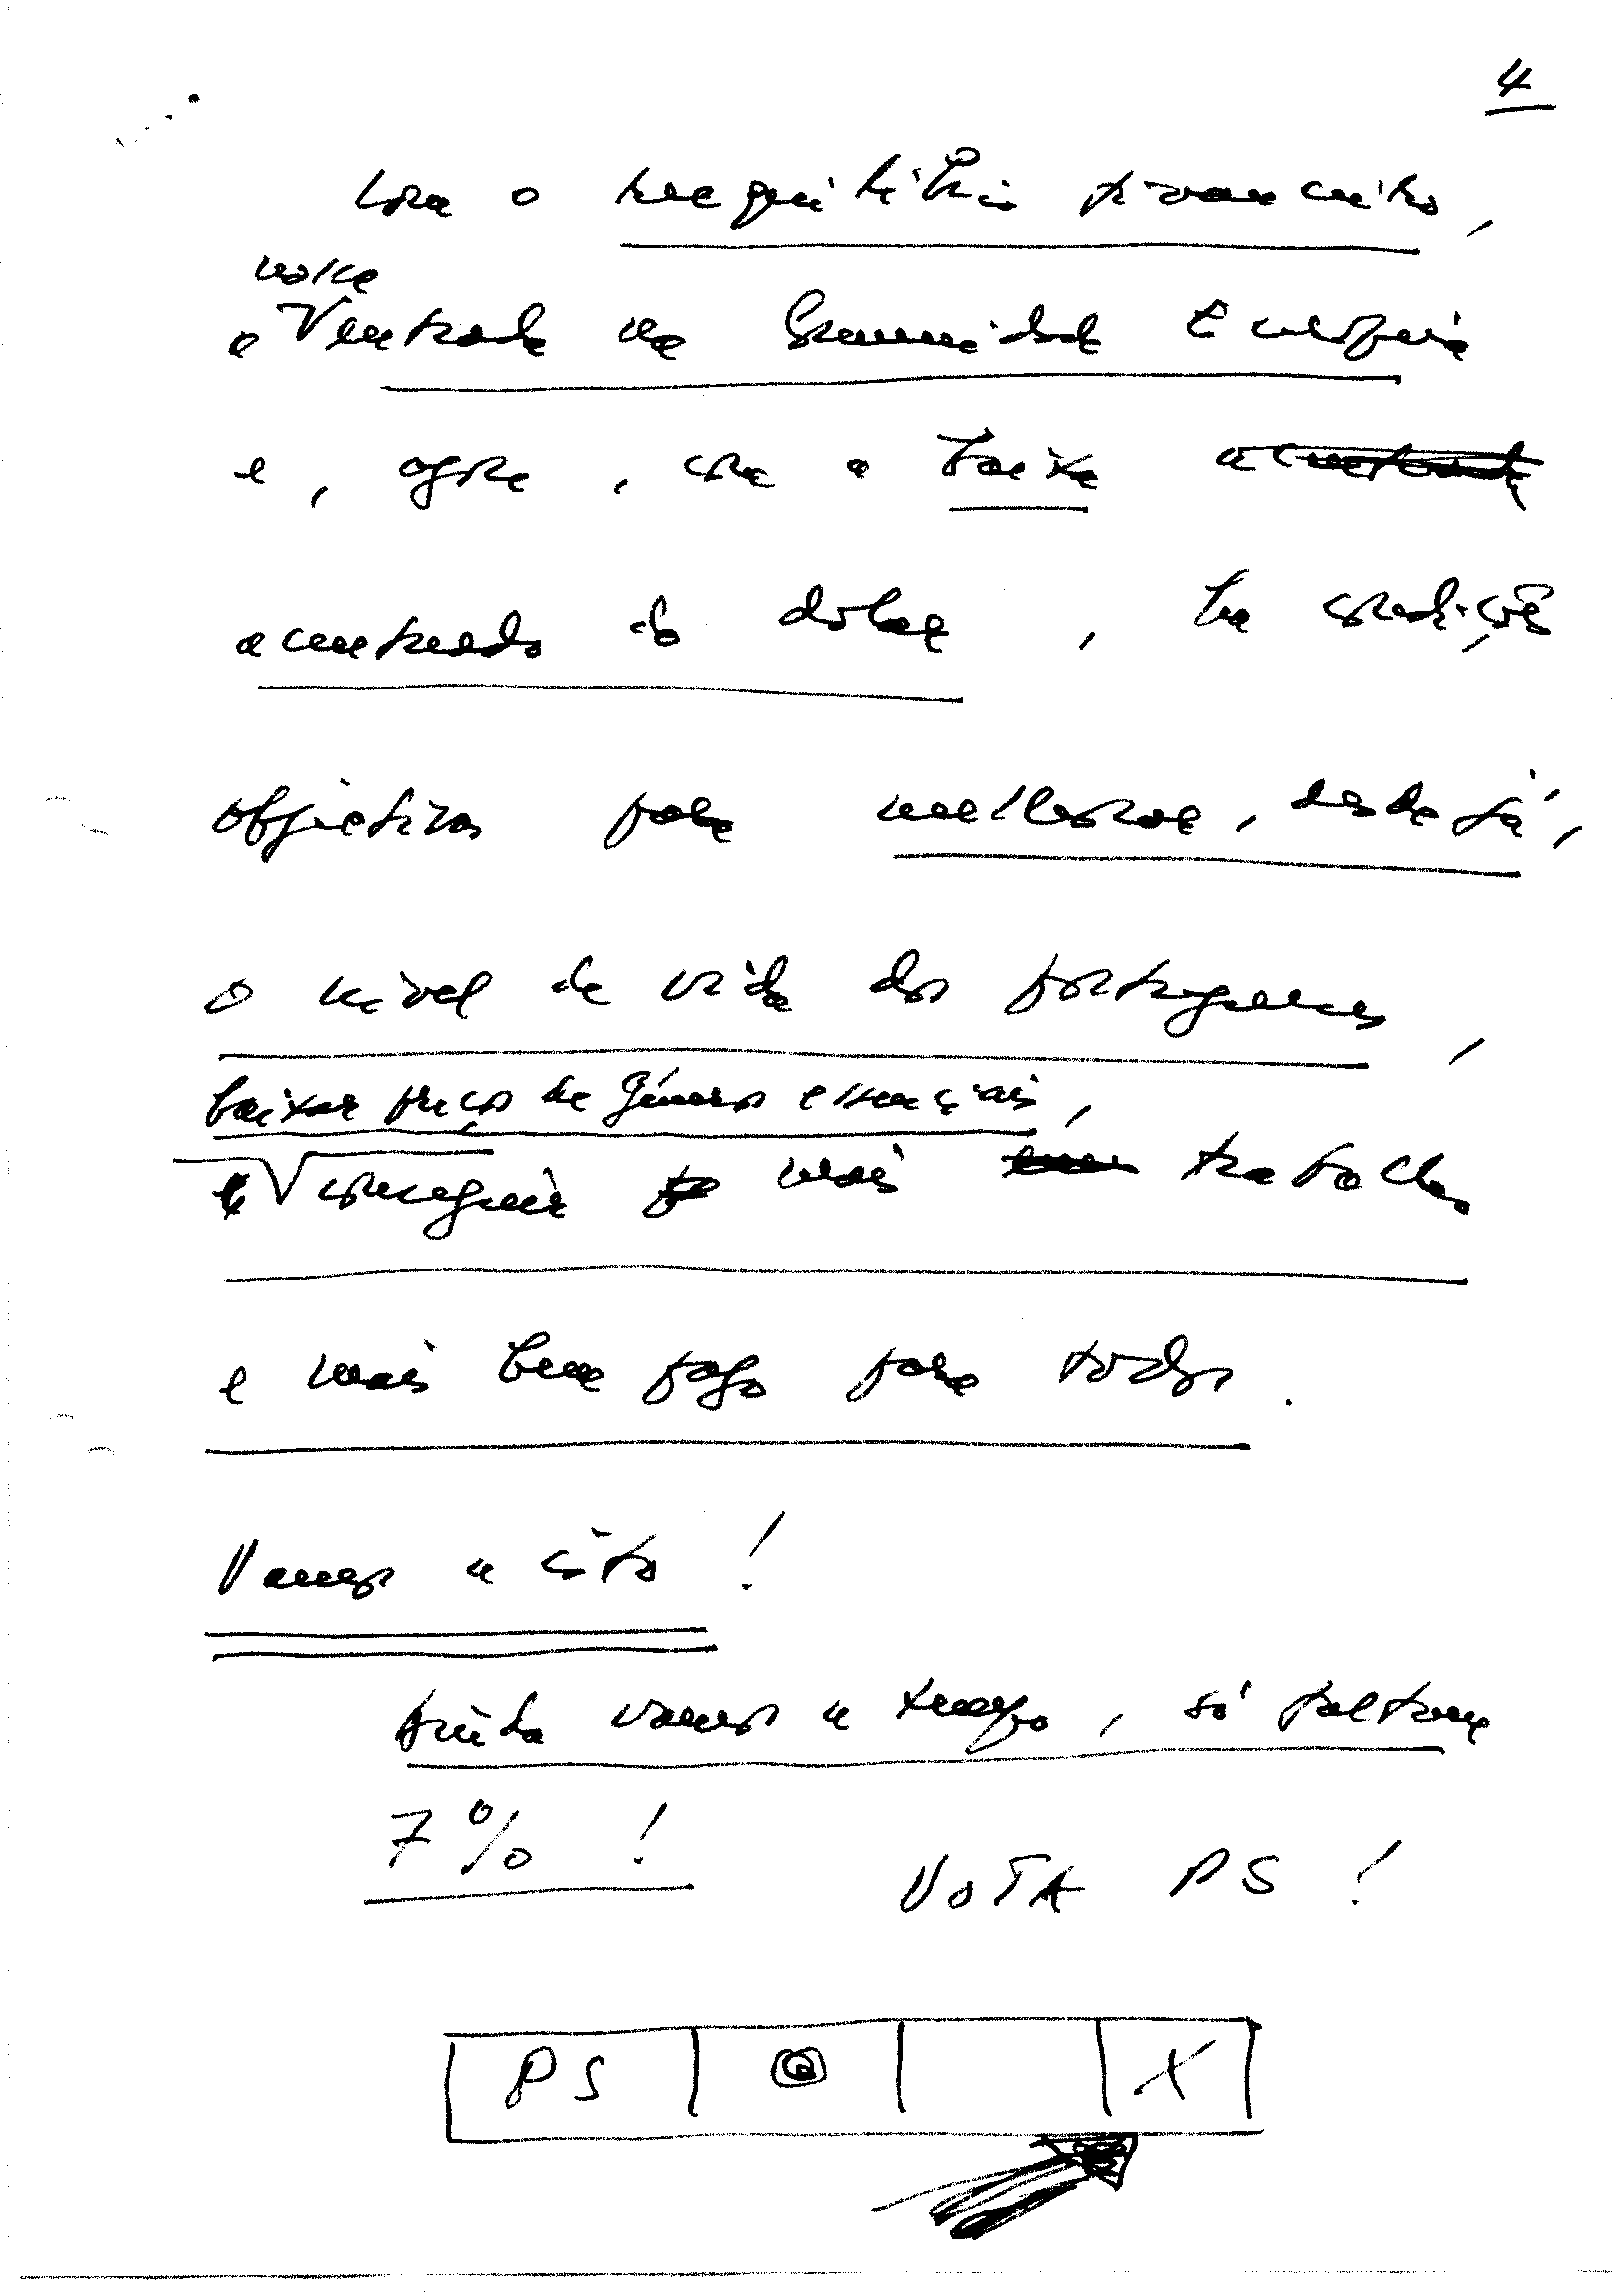 4
Com o reequilíbrio financeiro,
nossa
a entrada na Comunidade Europeia
e, agora, com a baixa
acentuada do dólar, há condições
objectivas para melhorar, desde já,
o nível de vida dos portugueses,
baixar preços de géneros essenciais,
e conseguir mais trabalho
e mais bem pago para todos.
Vamos a isto!
Ainda vamos a tempo, só faltam
7%!
VOTA PS!
PS X